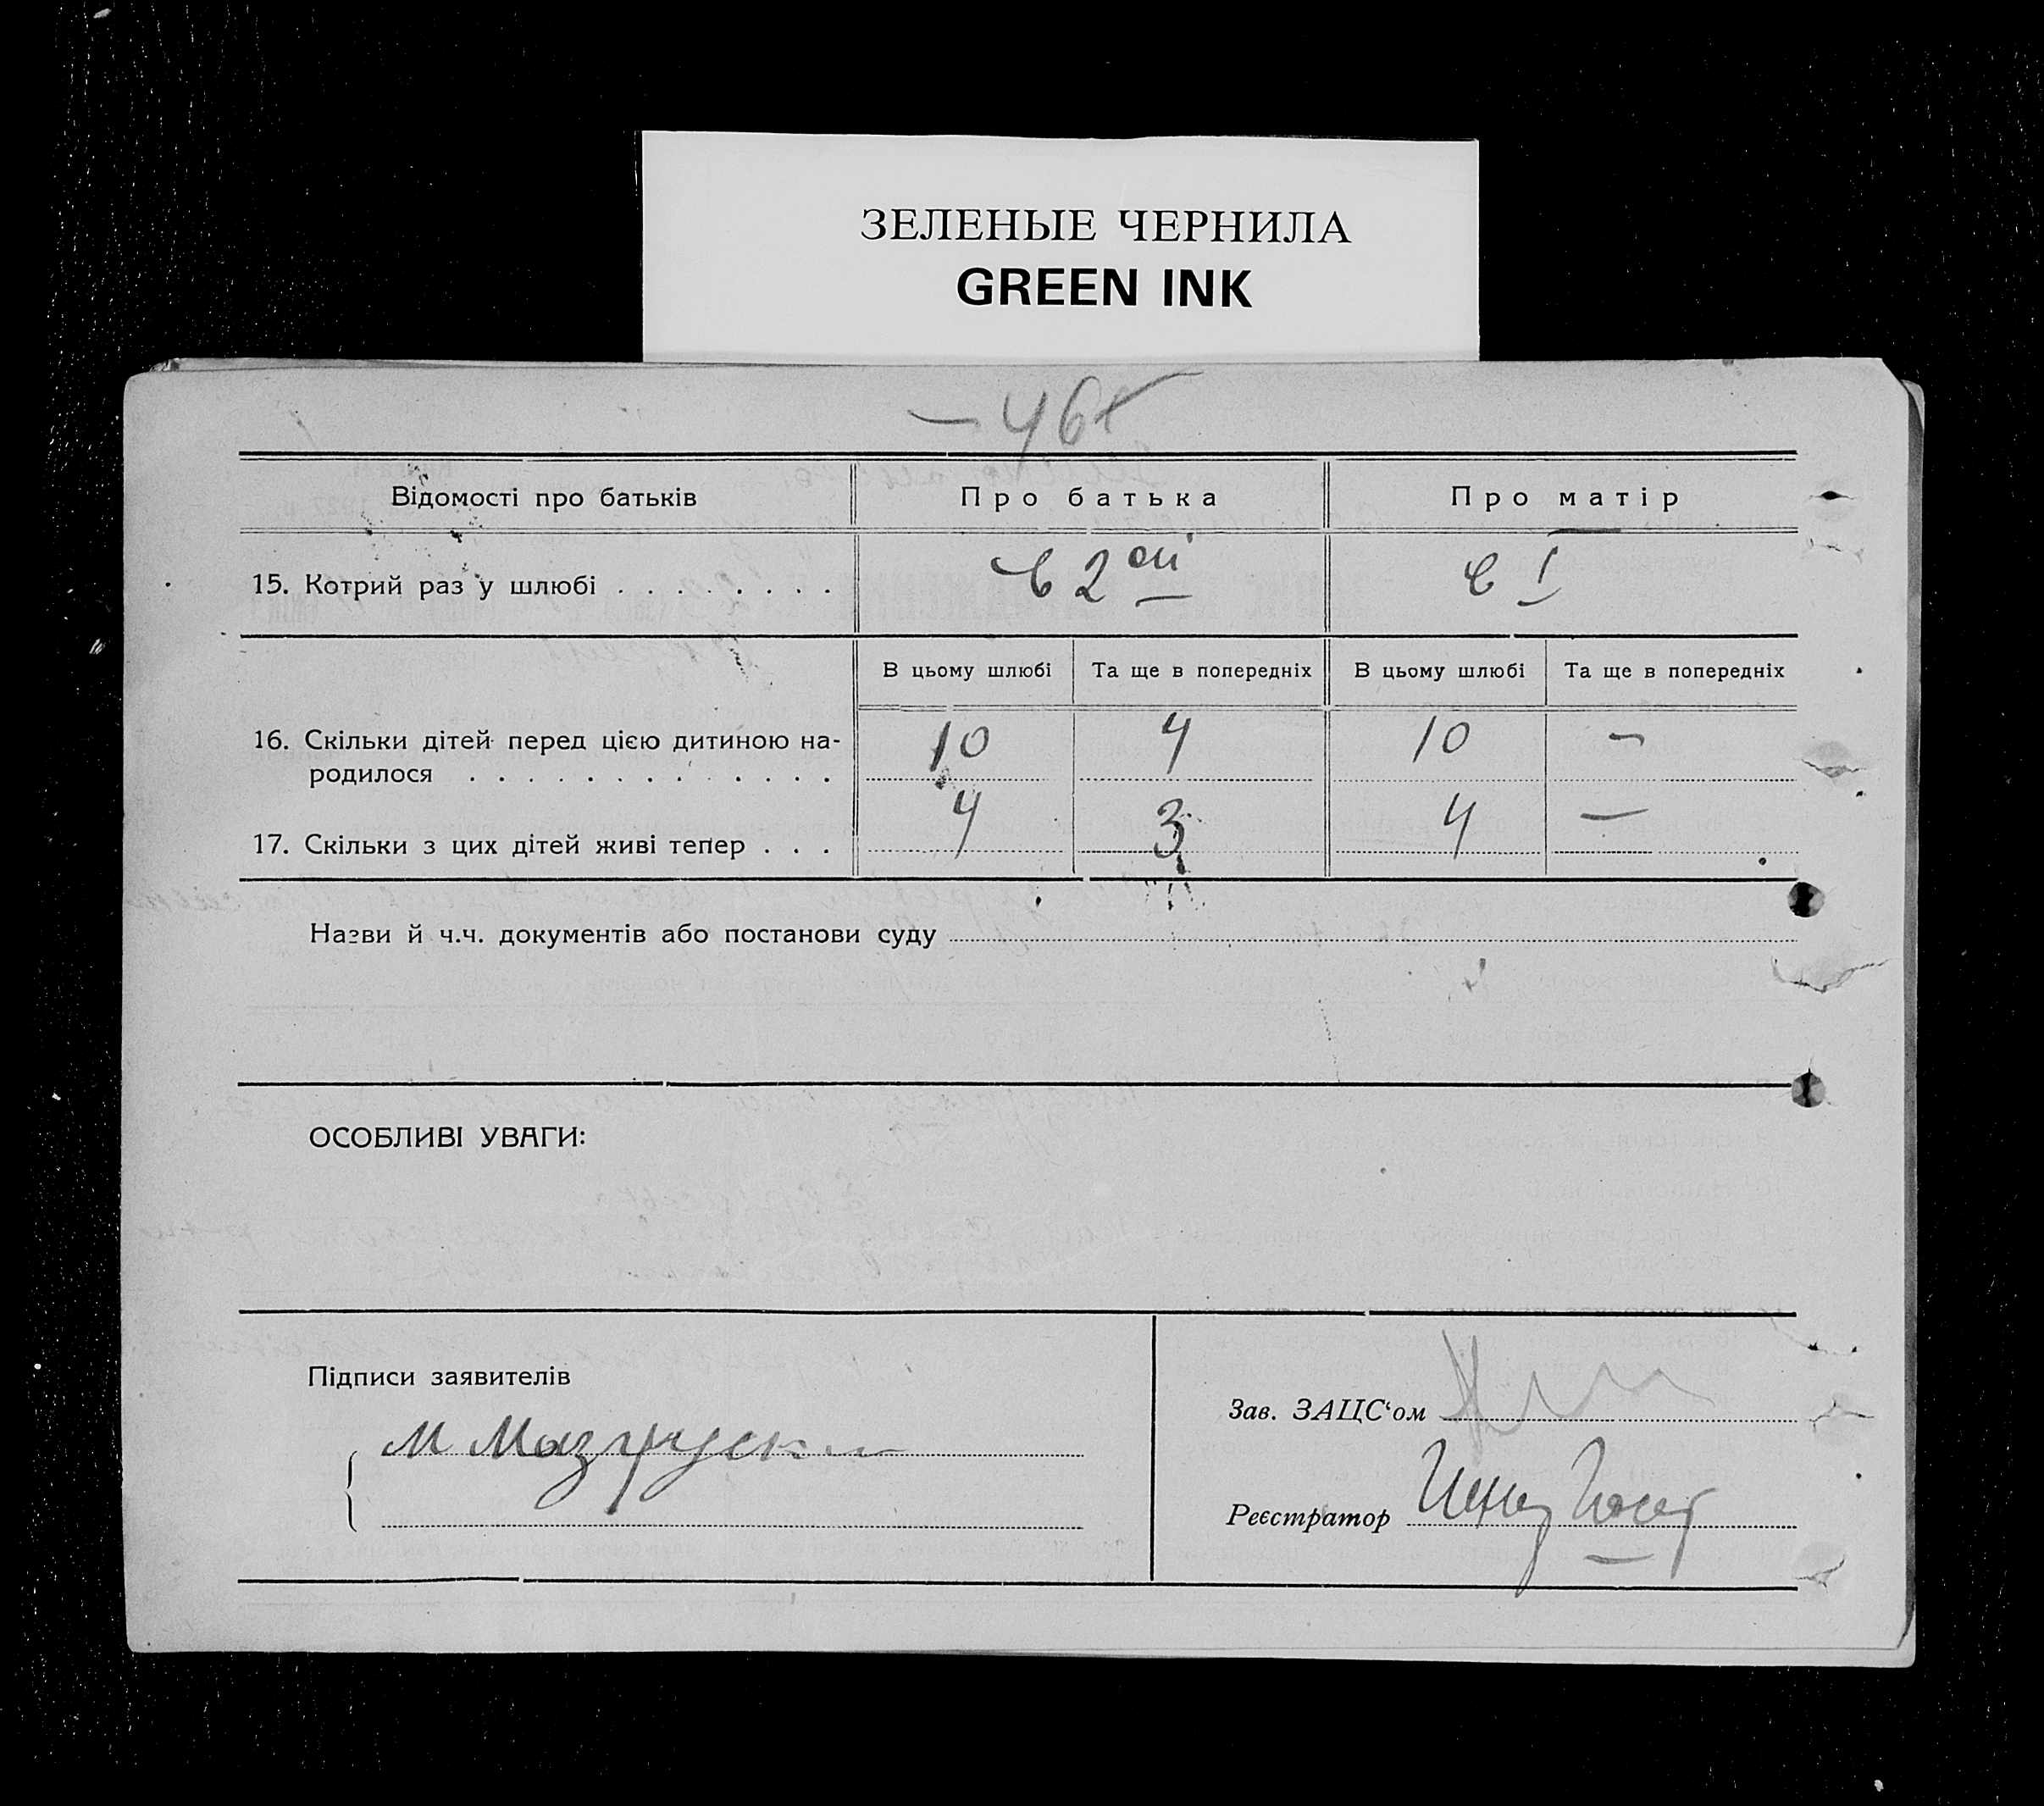 ЗЕЛЕНЫЕ ЧЕРНИЛА
GREEN INK
Відомості про батьків Про батька Про матір
15. Котрий раз у шлюбі . . . . . . . . в 2ой в I
В цьому шлюбі Та ще в попередніх В цьому шлюбі Та ще в попередніх
16. Скільки дітей перед цією дитиною на-
родилося . . . . . . . . . . . . . 10 4 10 –
17. Скільки з цих дітей живі тепер . . . 4 3 4 –
Назви й ч.ч. документів або постанови суду
ОСОБЛИВІ УВАГИ:
Підписи заявителів
Зав. ЗАЦС‘ом
М
Реєстратор